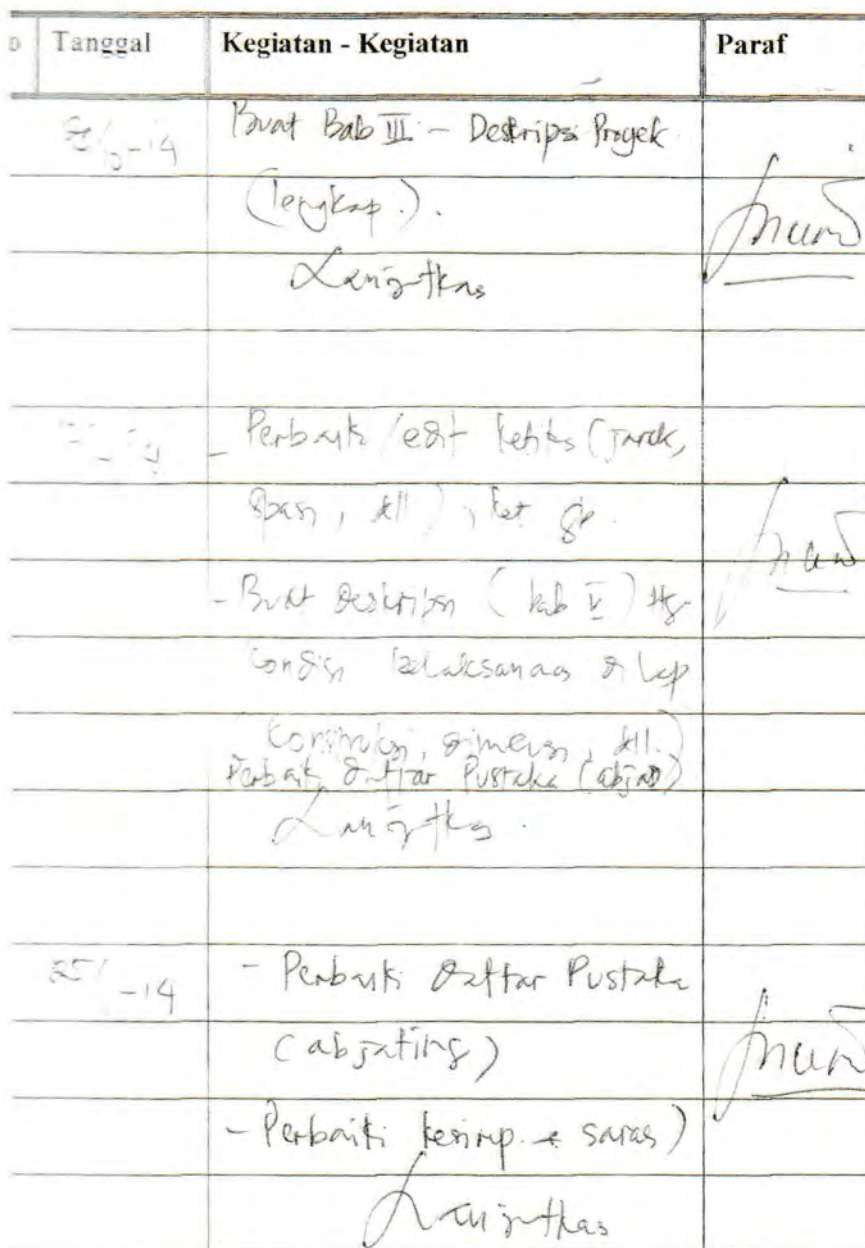 Tanggal Kegiatan - Kegiatan Paraf
/10-14 Buat Bab III - Deskripsi Proyek
(lengkap.).
Lanjutkan
- Perbaiki /edit ketikan (jarak,
spasi, dll), ket gb.
- Buat deskripsi (bab V) ttg
kondisi pelaksanaan di lap
(konstruksi, dimensi, dll.)
Perbaiki daftar Pustaka (abjad)
Lanjutkan.
25/ -14 - Perbaiki daftar Pustaka
(
- Perbaiki kesimp. + saran)
Lanjutkan